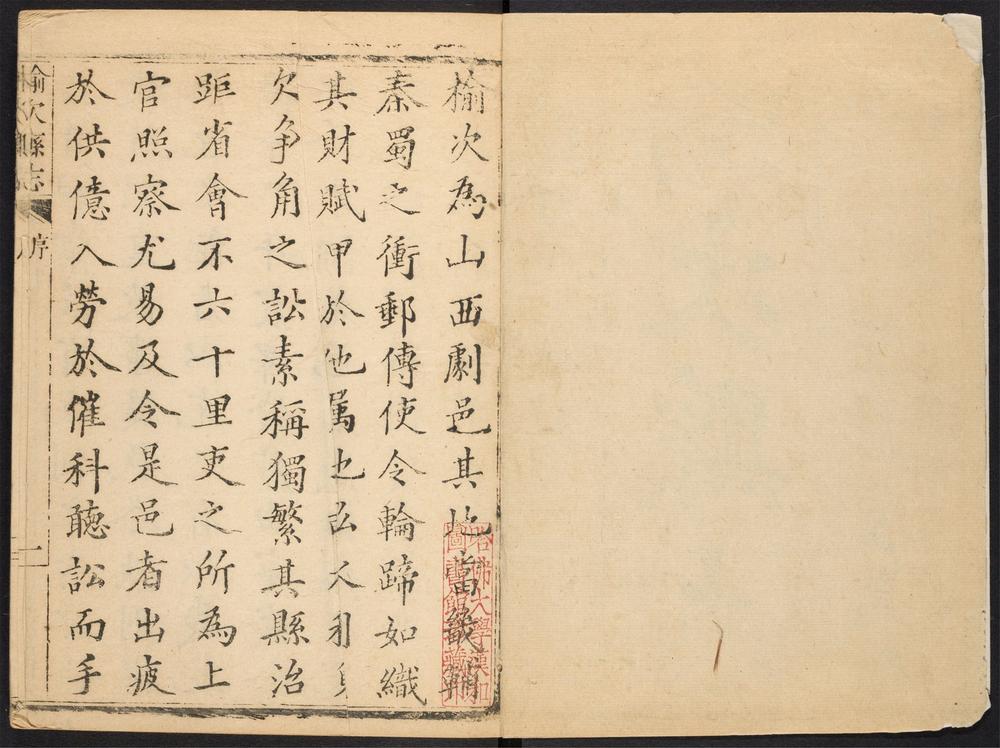 榆次為山西劇邑其地當畿輔
秦蜀之衝郵傳使令輪蹄如織
其財賦甲於他属也
欠争角之訟素稱獨繁其縣治
距省會不六十里吏之所為上
官照察尤易及令是邑者出疲
於供億入勞於催科聽訟而手
榆次縣志
序
一
哈佛大學漢和
圖書館藏